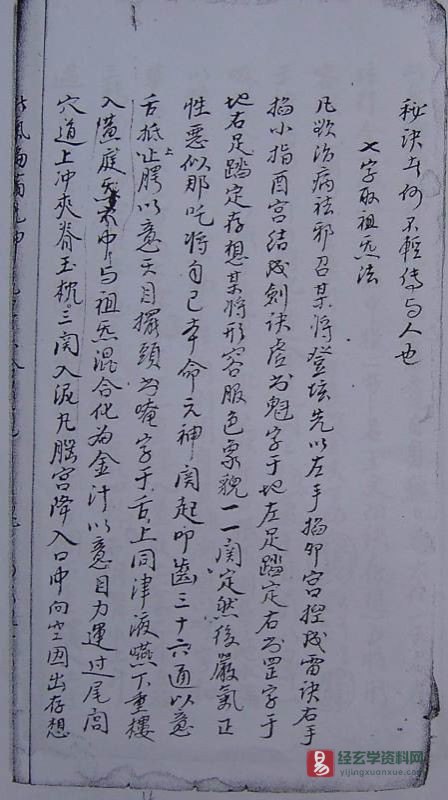 秘诀与何不轻傳与人也
七字取祖炁法
凡欲治病祛邪召某将登坛先以左手掐卯宫控成雷诀右手
掐小指酉宫结成剑诀虚书魁字于地左足踏定右书罡字于
地右足踏定存想某将形容服色象貌一一阅定然後嚴氣正
性恶似那吒将自己本命元神阅起叩齒三十六通以意
舌抵上腭以意天目摆頭书唵字于舌上同津液嚥下重樓
入黄庭炁穴中与祖炁混合化为金汁以意目力運过尾闾
穴道上冲夾脊玉枕三関入泥丸腦宫降入口中向空囟出存想
经玄学资料网
yijingxuanxue.com